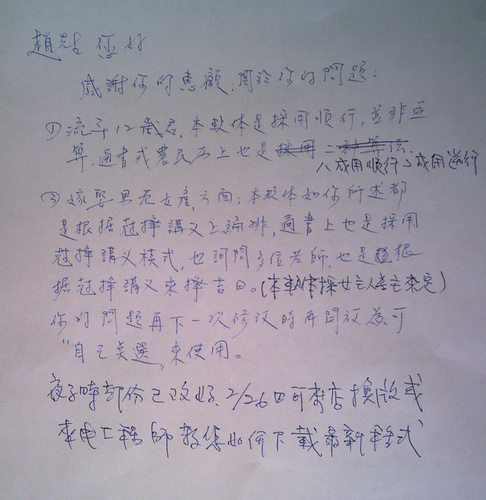 趙先生 您好
感謝你的惠顧,關於你的問題:
①流年12歲君,本軟体是採用順行,並非逆
算,通書或農民历上也是
八成用順行2成用逆行
②嫁娶男 女產方面:本軟体如你所述都
是根据冠擇講义上編排,通書上也是採用
冠擇講义模式,也河問多位老師,也是 根
据冠擇講义來擇吉日。(本軟体採女主人为主來定)
你的問題再下一次修改時再開放為可
"自己点選"來使用。
夜子時部份已改好、2/26日可來店換版或
來电工程師教您如何下載最新程式